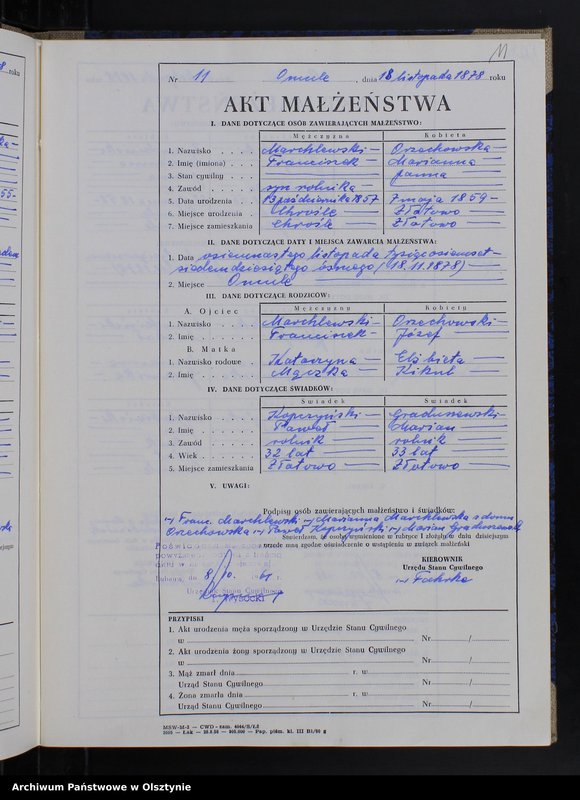 11
Nr 11 Omule, dnia 18 listopada 1878 roku
AKT MAŁŻEŃSTWA
I. DANE DOTYCZĄCE OSÓB ZAWIERAJĄCYCH MAŁŻEŃSTWO:
Mężczyzna Kobieta
1. Nazwisko Marchlewski Orzechowska
2. Imię (imiona) Franciszek Marianna
3. Stan cywilny panna
4. Zawód syn rolnika
5. Data urodzenia 13 października 1857 7 maja 1859
6. Miejsce urodzenia Chrośle Złotowo
7. Miejsce zamieszkania Chrośle Złotowo
II. DANE DOTYCZĄCE DATY I MIEJSCA ZAWARCIA MAŁŻEŃSTWA:
1. Data osiemnastego listopada tysiąc osiemset
siedemdziesiątego ósmego (18.11.1878)
2. Miejsce Omule
III. DANE DOTYCZĄCE RODZICÓW:
Mężczyzny Kobiety
A. Ojciec
1. Nazwisko Marchlewski Orzechowski
2. Imię Franciszek Józef
B. Matka
1. Nazwisko rodowe Katarzyna Elżbieta
2. Imię Mączka Kikul
IV. DANE DOTYCZĄCE ŚWIADKÓW:
Świadek Świadek
1. Nazwisko Kopczyński Graduszewski
2. Imię Paweł Marian
3. Zawód rolnik rolnik
4. Wiek 32 lat 33 lat
5. Miejsce zamieszkania Złotowo Złotowo
V. UWAGI:
Podpisy osób zawierających małżeństwo i świadków:
Franc. Marchlewski Marianna Marchlewska z domu
Orzechowska Paweł Kopczyński Marian Graduszewski
Stwierdzam, że osoby wymienione w rubryce I złożyły w dniu dzisiejszym
przede mną zgodne oświadczenie o wstąpieniu w związek małżeński
KIEROWNIK
Urzędu Stanu Cywilnego
Lubawa, dnia 8/10. 1961 r.
Urzędnik Stanu Cywilnego
Wysocki
PRZYPISKI
1. Akt urodzenia męża sporządzony w Urzędzie Stanu Cywilnego
w Nr /
2. Akt urodzenia żony sporządzony w Urzędzie Stanu Cywilnego
w Nr /
3. Mąż zmarł dnia r. w
Urząd Stanu Cywilnego Nr /
4. Żona zmarła dnia r. w
Urząd Stanu Cywilnego Nr /
Archiwum Państwowe w Olsztynie